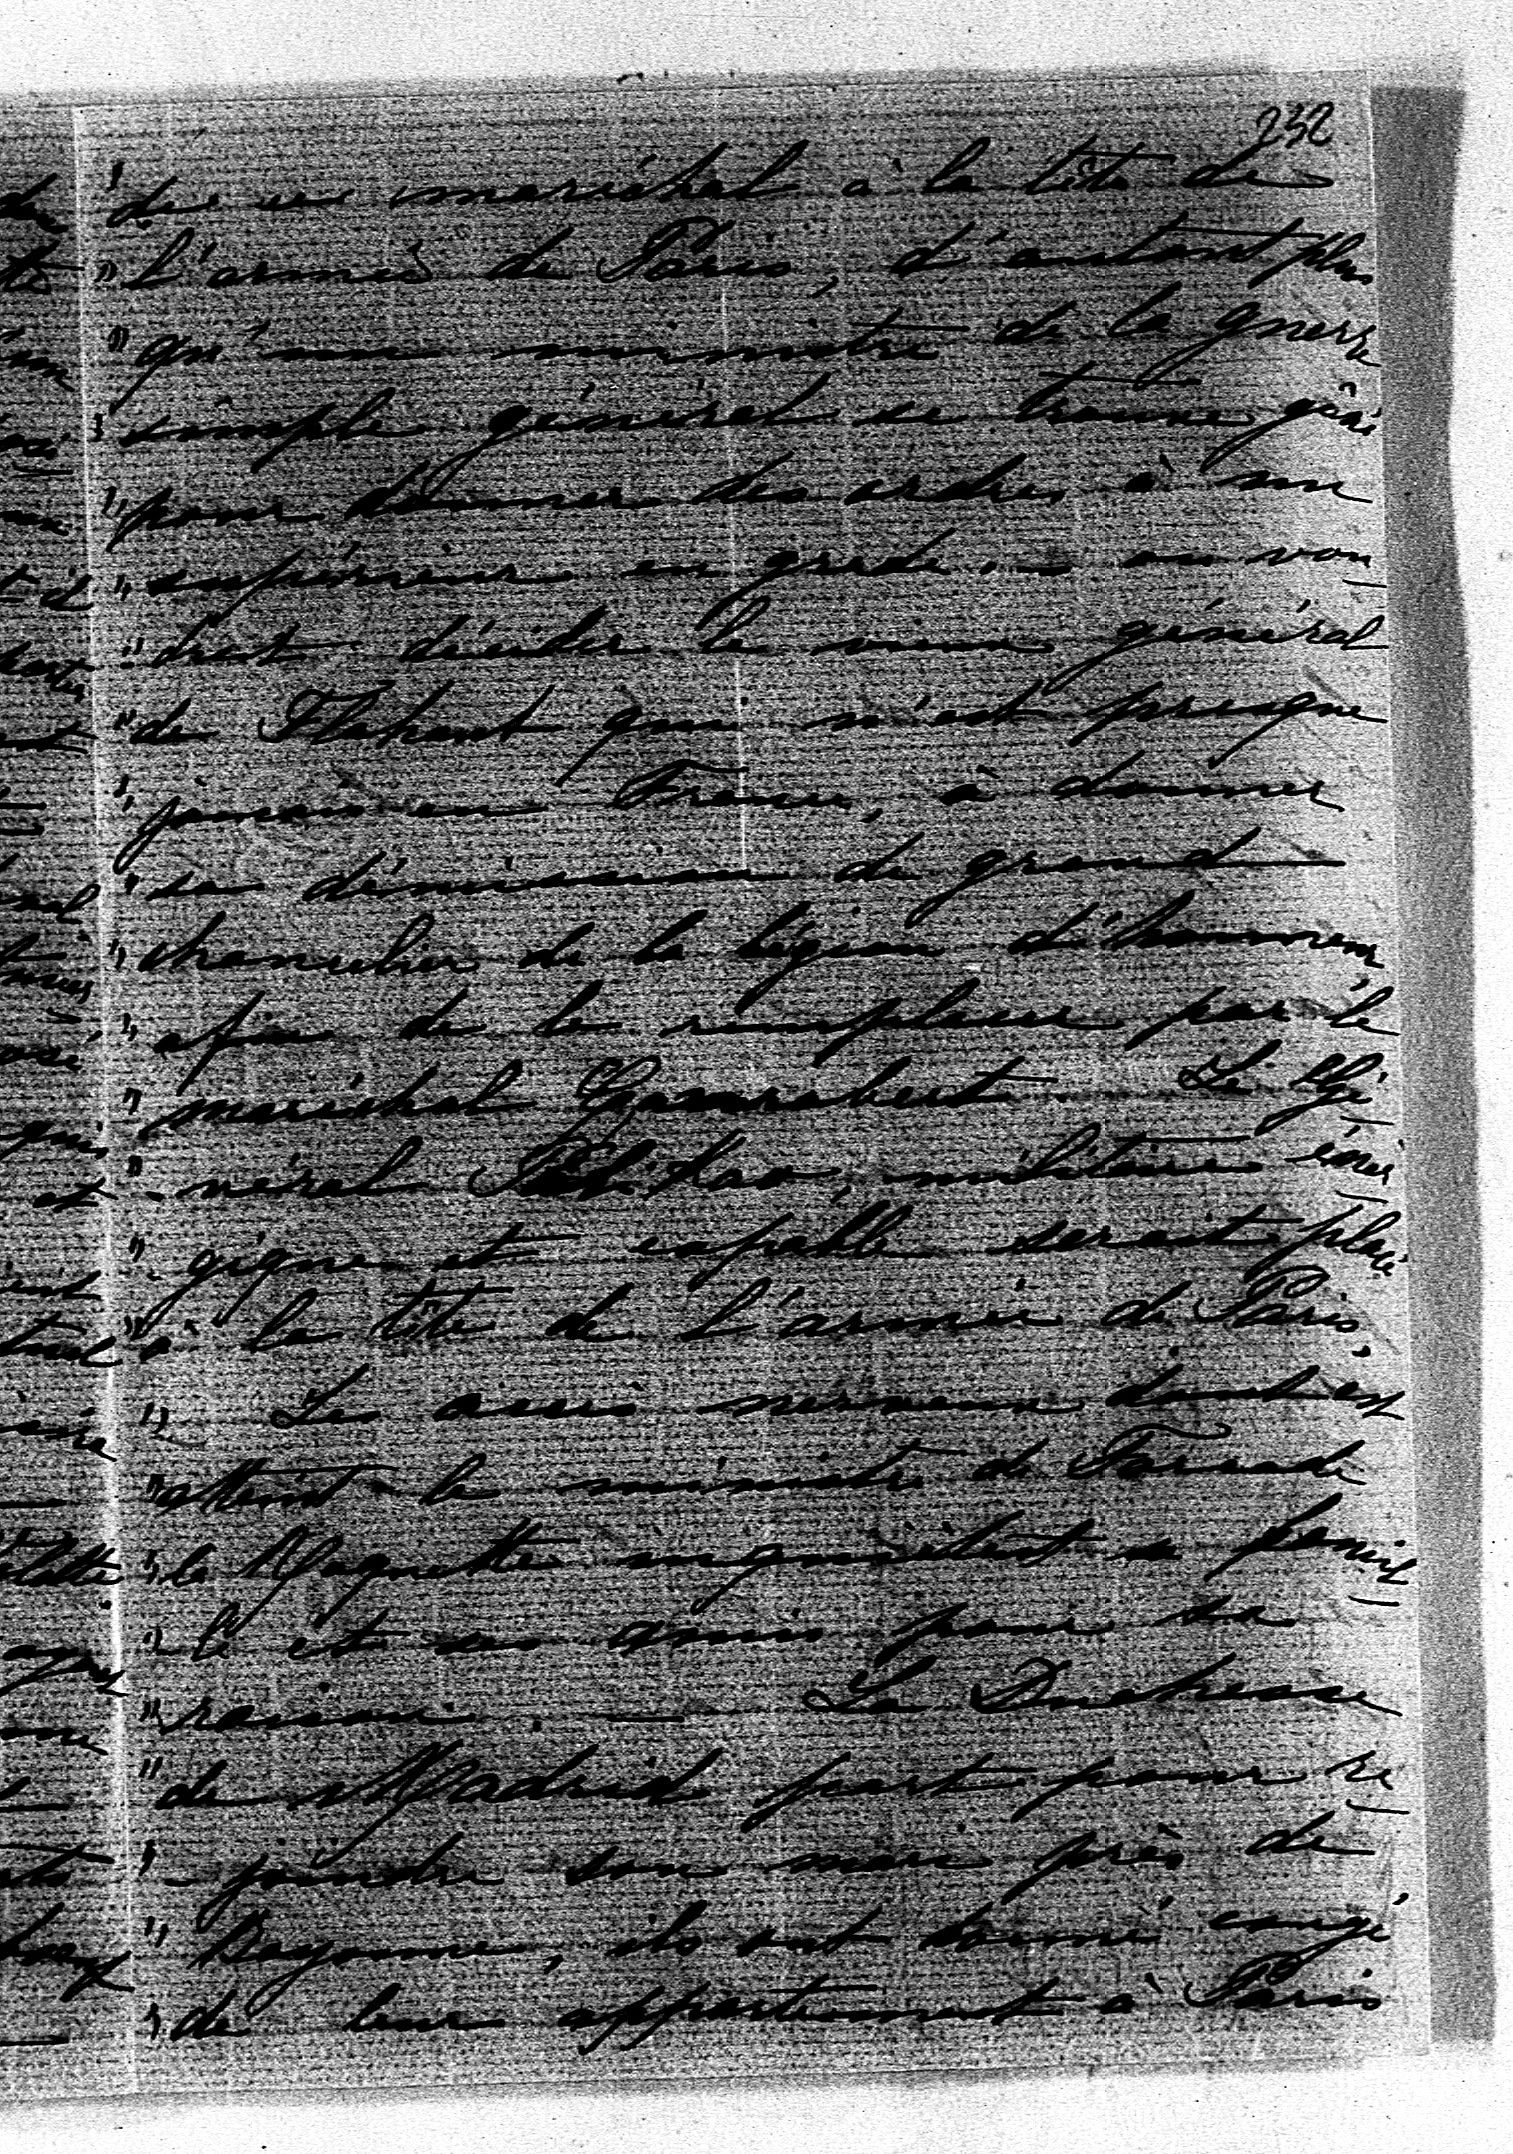 232
" de un maréchal à la tête de
" l'armée de Paris, d'autant plus
" qu'un ministre de la guerre
" simple général se trouve gêné
" pour donner des ordres à un
" supérieur en grade. — on vou
" drait décider le vieux général
" de Flahaut qui n'est presque
" jamais en France, à donner
" sa démission de grand
" chancelier de la légion d'honneur
" afin de le remplacer par le
" maréchal Canrobert. Le Gé
" néral Palikao, militaire éner
" gique et capable serait placé
" à la tête de l'armée de Paris.
" Les accès nerveux dont est
" atteint le ministre de Forcade
" la Roquette inquiètent sa famil
" le et ses amis pour sa
" raison. — La Duchesse
" de Madrid part pour re
" joindre son mari près de
" Bayonne, ils ont donné congé
" de leur appartement à Paris